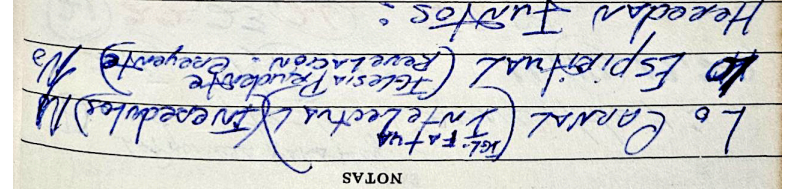 NOTAS
Lo CARNAL (IGL. FATUA INTELECTUAL) (Incredulos) N
Lo Espiritual (Iglesia Prudente
Revelacion. Creyente) No
Heredan Juntos: